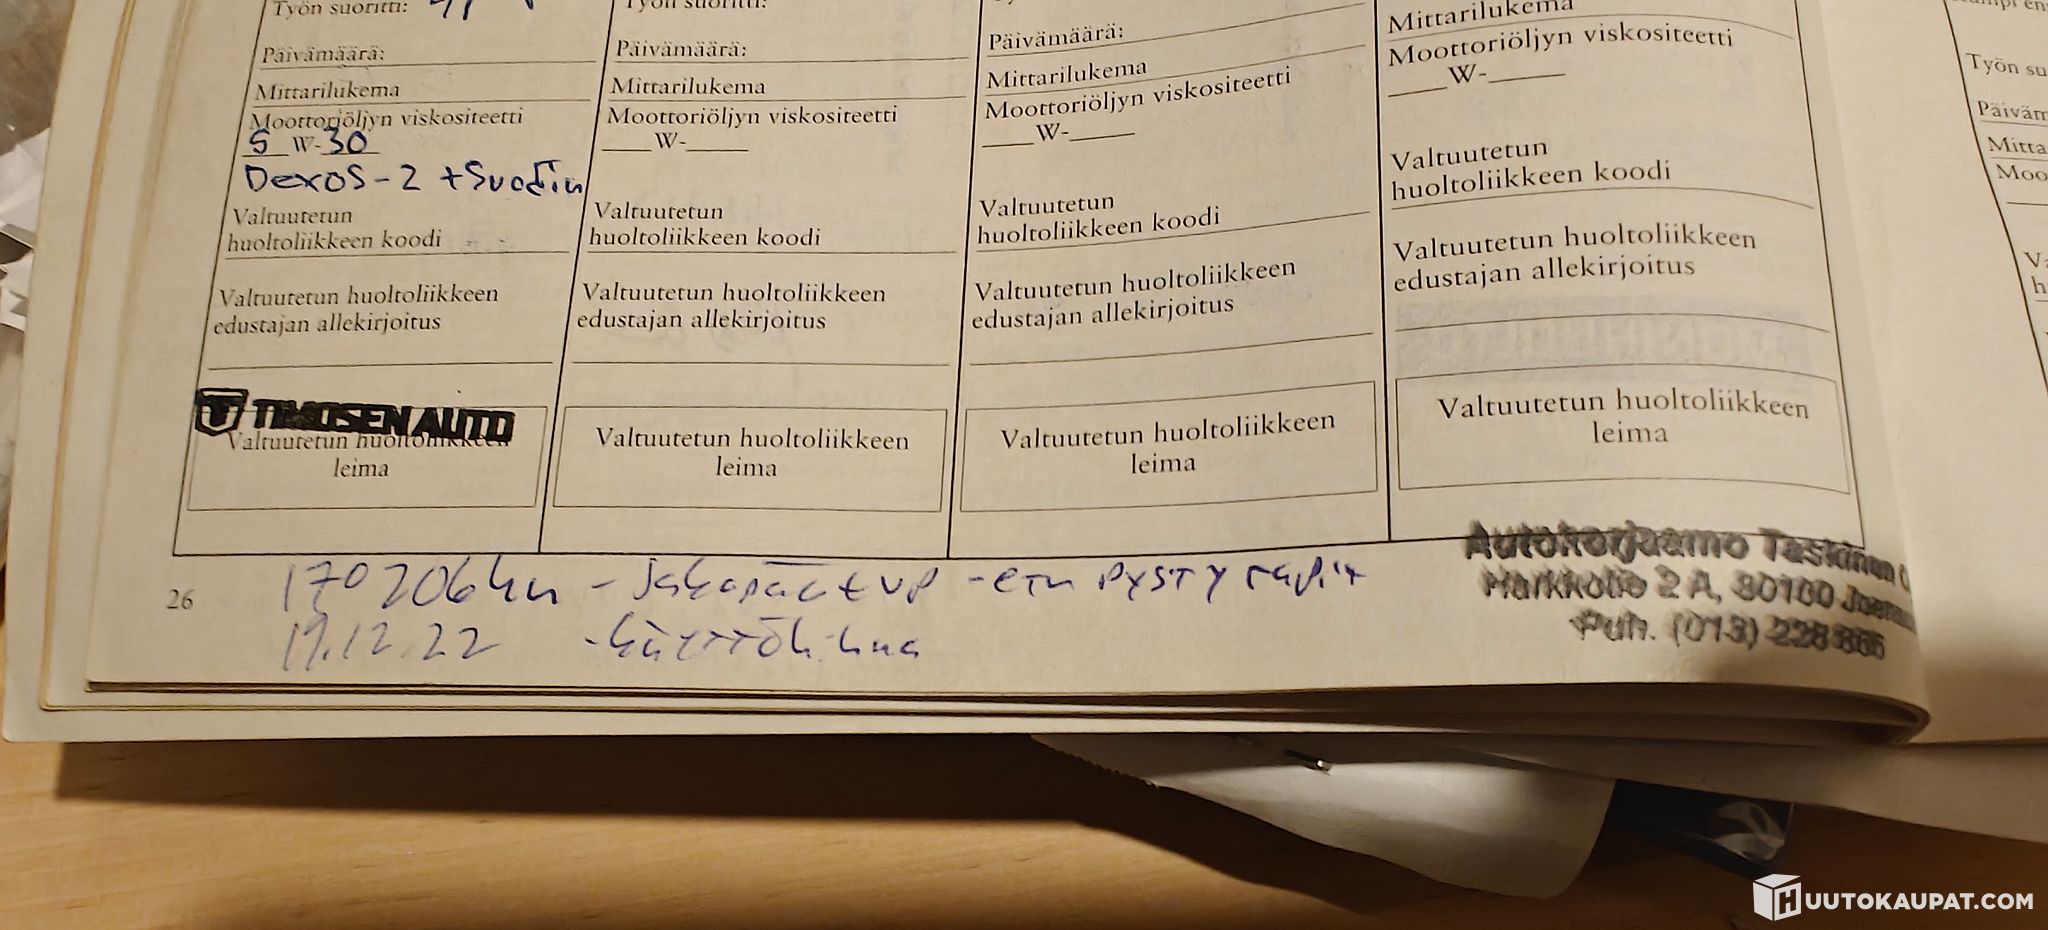 Työn suoritti:
Päivämäärä:
Mittarilukema
Moottoriöljyn viskositeetti
5 W-30
Dexos-2 + Suodin
Valtuutetun
huoltoliikkeen koodi
Valtuutetun huoltoliikkeen
edustajan allekirjoitus
TIMOSEN AUTO
Valtuutetun huoltoliikkeen
leima
Työn suoritti:
Päivämäärä:
Mittarilukema
Moottoriöljyn viskositeetti
___W-____
Valtuutetun
huoltoliikkeen koodi
Valtuutetun huoltoliikkeen
edustajan allekirjoitus
Valtuutetun huoltoliikkeen
leima
Päivämäärä:
Mittarilukema
Moottoriöljyn viskositeetti
___W-____
Valtuutetun
huoltoliikkeen koodi
Valtuutetun huoltoliikkeen
edustajan allekirjoitus
Valtuutetun huoltoliikkeen
leima
Mittarilukema
Moottoriöljyn viskositeetti
___W-____
Valtuutetun
huoltoliikkeen koodi
Valtuutetun huoltoliikkeen
edustajan allekirjoitus
Valtuutetun huoltoliikkeen
leima
170206km - jakopää + VP - etu pysty
19.12.22 - käyttöhihna
Autokorjaamo Taskinen
2 A, 80100
Puh. (013)
26
Työn su
Päiväm
Mitta
Moo
HUUTOKAUPAT.COM